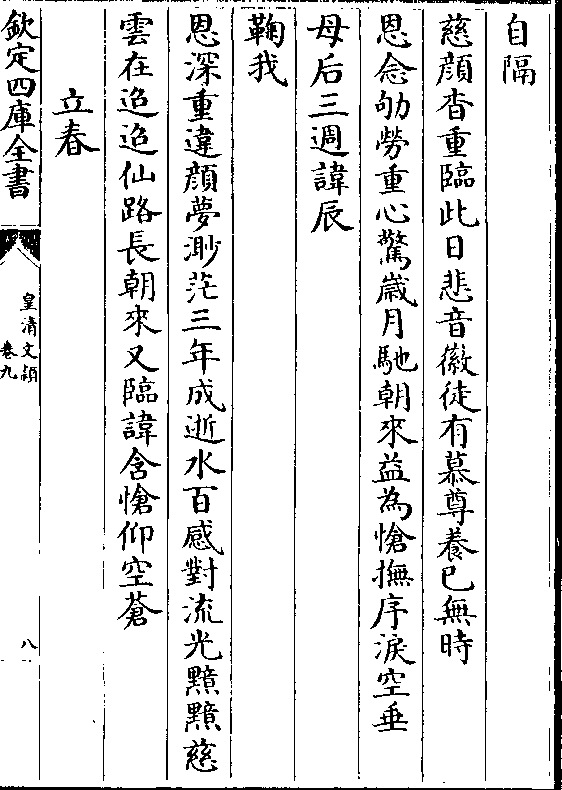 自隔
慈顔杳重臨此日悲音徽徒有慕尊養已無時
恩念劬勞重心驚嵗月馳朝來益為愴撫序淚空垂
母后三週諱辰
鞠我
恩深重違顔夢渺茫三年成逝水百感對流光黯黯慈
雲在迢迢仙路長朝來又臨諱含愴仰空蒼
立春
欽定四庫全書
皇清文穎
卷九
八